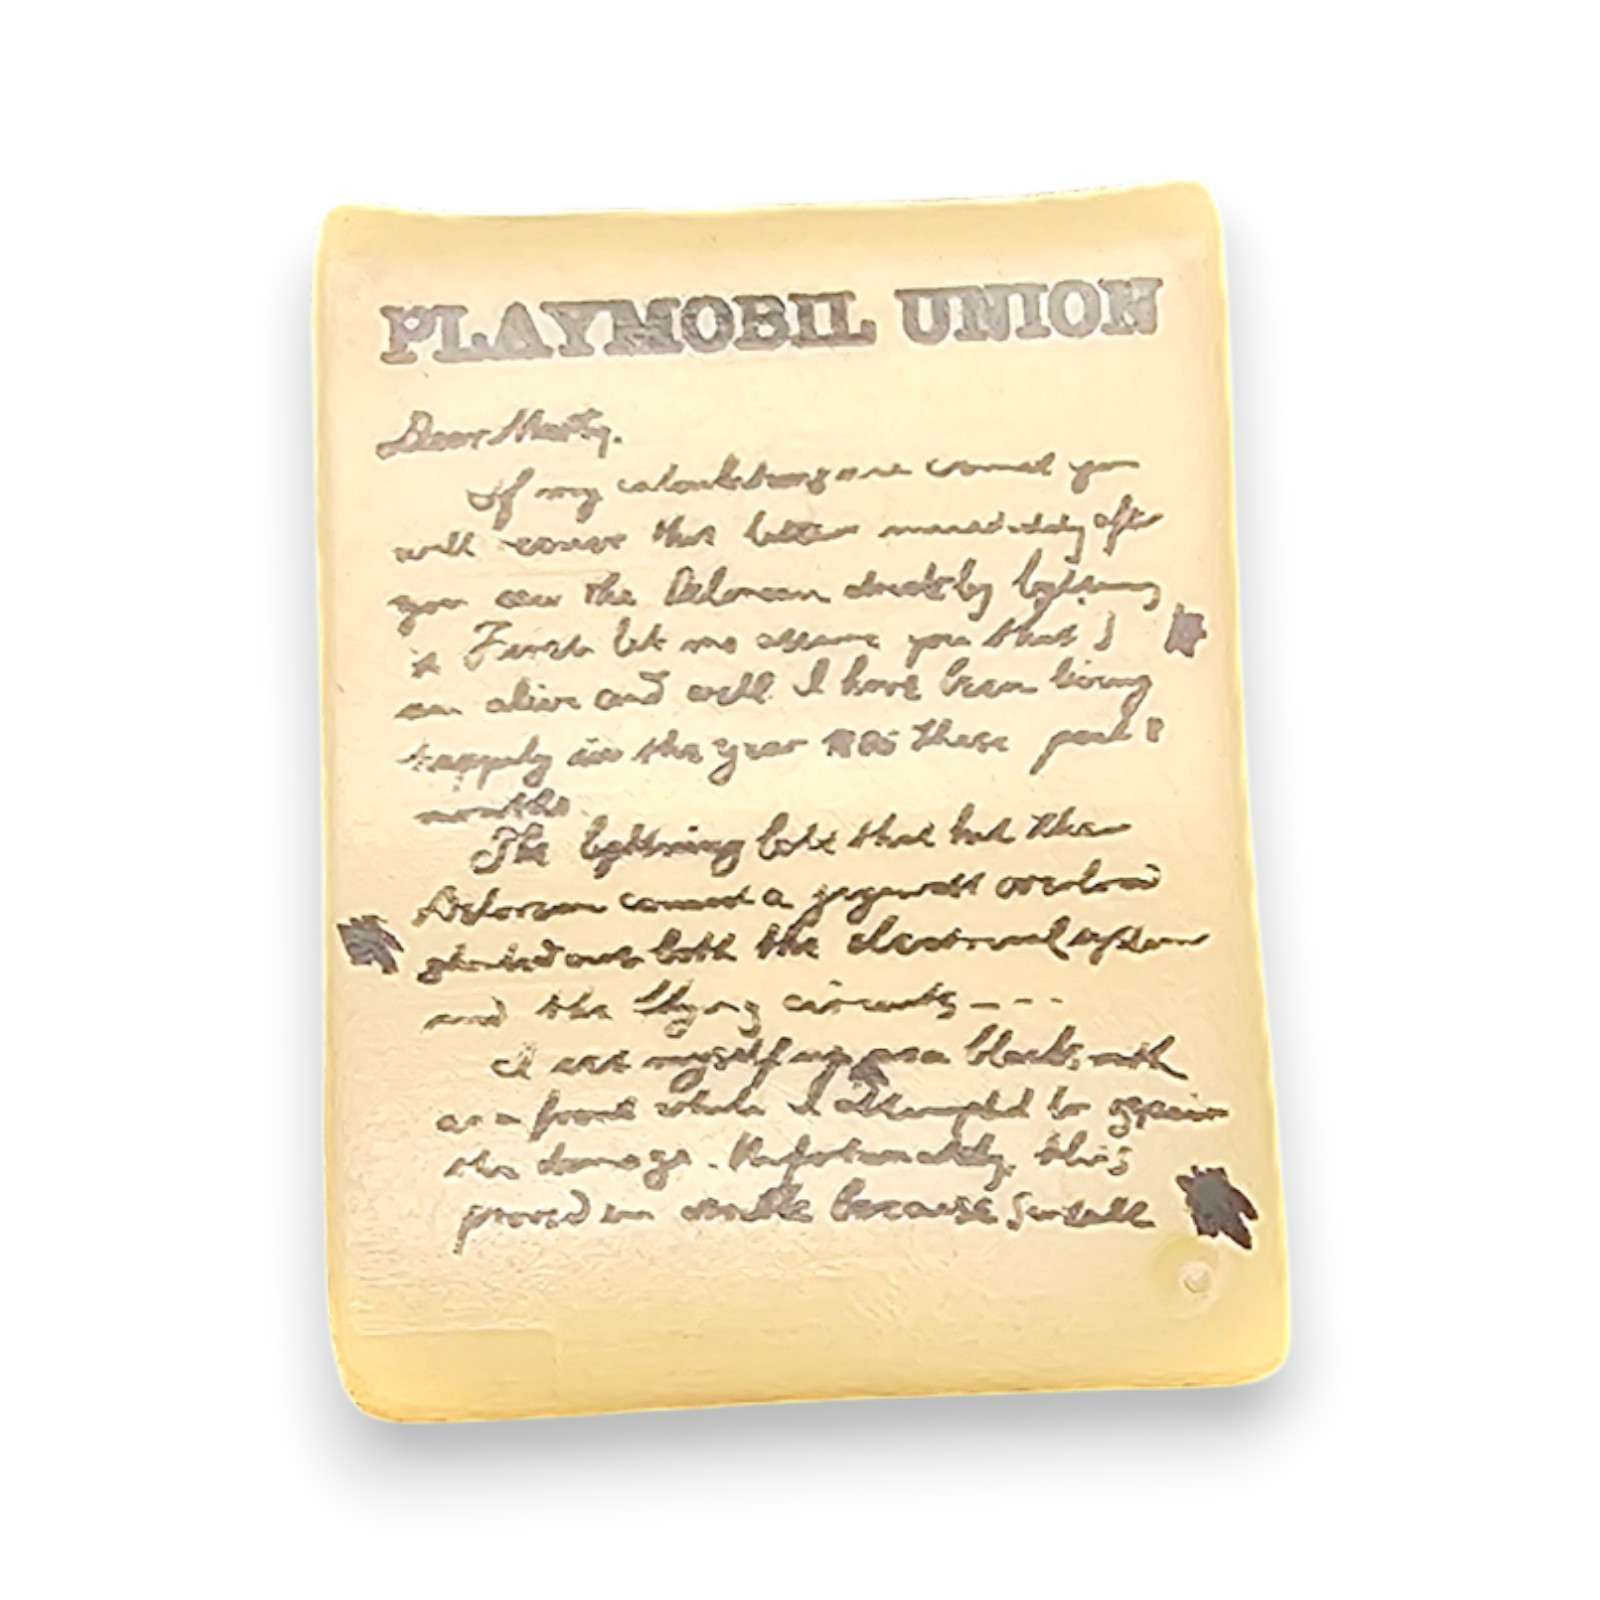 PLAYMOBIL UNION
Dear Marty,
If my calculations are correct you
will receive this letter immediately after
you saw the Delorean struck by lightning
First let me assure you that I
am alive and well I have been living
happily in the year 1885 these past 8
months
The lightning bolt that hit the
Delorean caused a jigowatt overload
out both the electrical system
and the flying circuits - - - -
I set myself up as a blacksmith
as a front while I attempted to repair
the damage. Unfortunately, this
proved because suitable